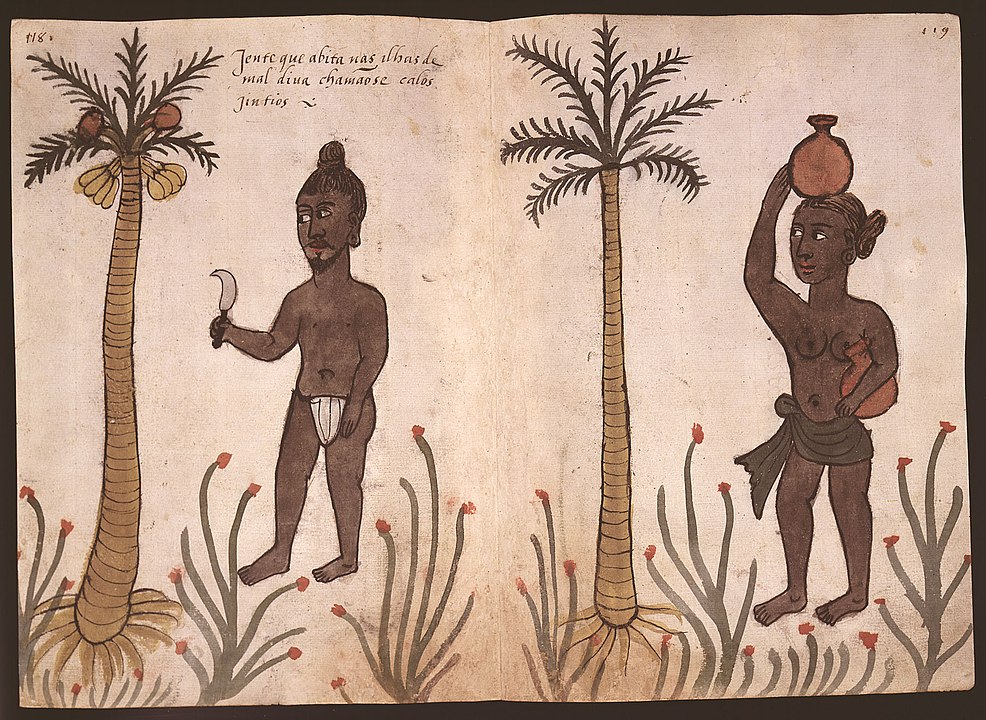 118
Jente que abita nas ilhas de
mal diva chamaose calos
Jintios
119